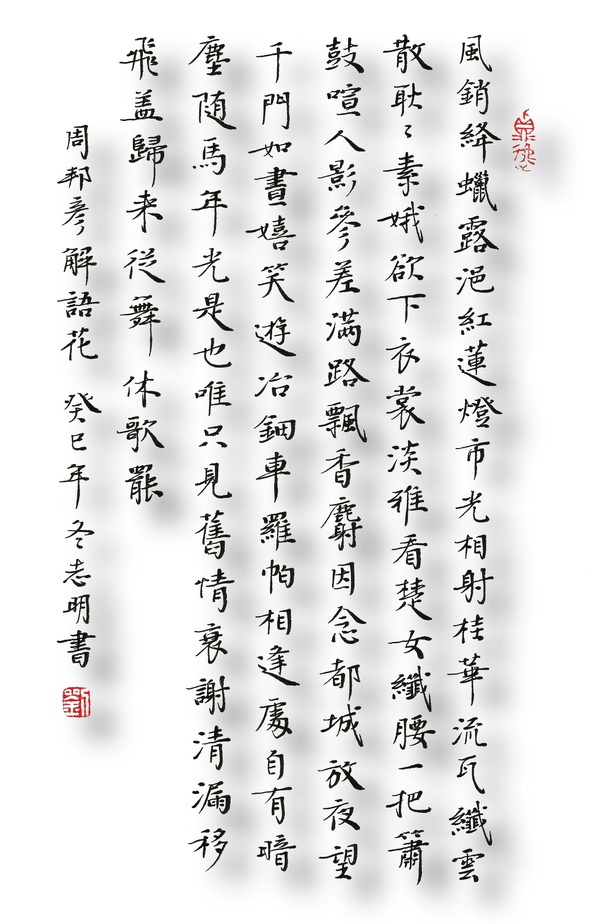 風銷絳蠟露浥紅蓮燈市光相射桂華流瓦纖雲
散耿〻素娥欲下衣裳淡雅看楚女纖腰一把簫
鼓喧人影參差滿路飄香麝因念都城放夜望
千門如晝嬉笑遊冶鈿車羅帕相逢處自有暗
塵隨馬年光是也唯只見舊情衰謝清漏移
飛盖歸来從舞休歌罷
周邦彥解語花 癸巳年冬志明書
劉